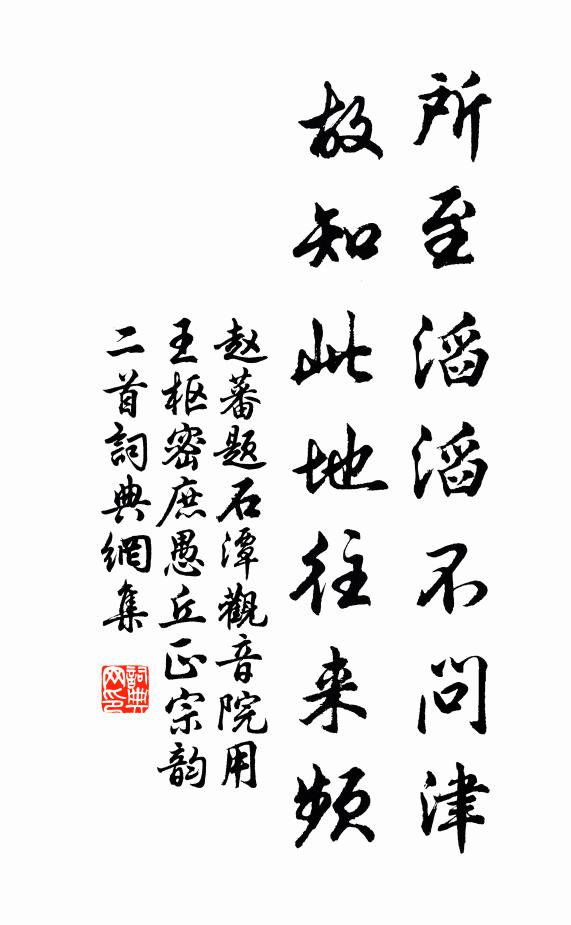 所至滔滔不問津
故知此地往来頻
赵蕃題石潭觀音院用
王枢密庶愚丘正宗韵
二首詞典網集
詞典网印